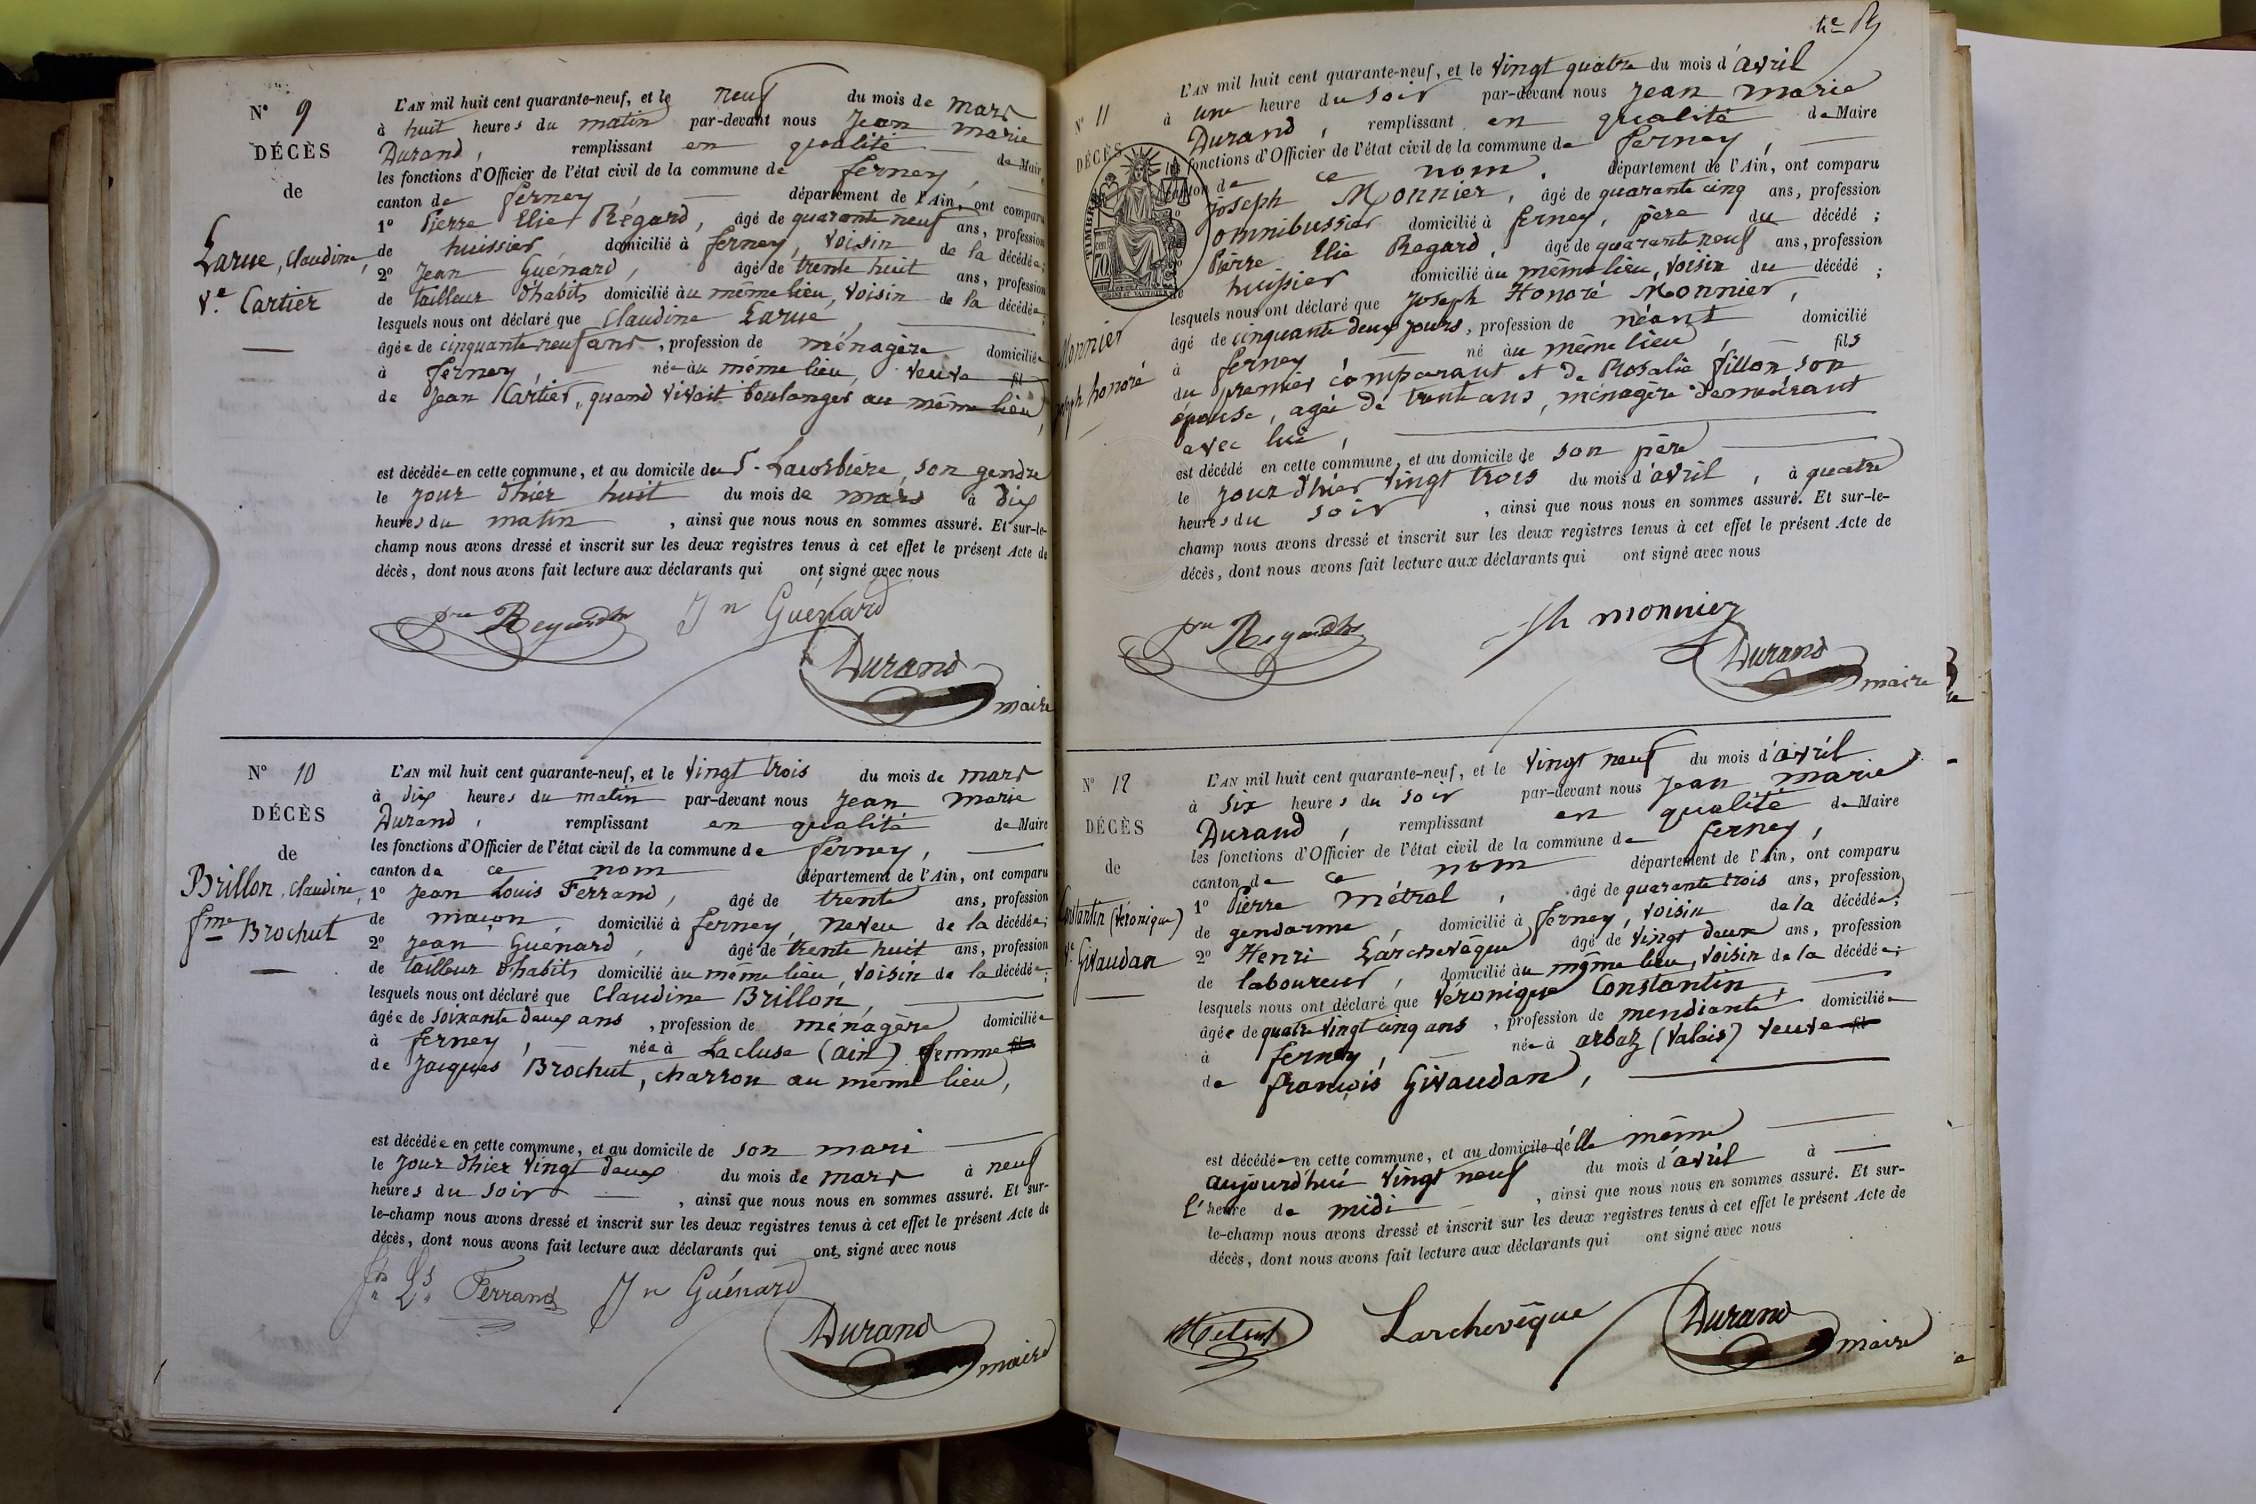 N° 9
DÉCÈS
de
Larue, Claudine,
Ve. Cartier
L'AN mil huit cent quarante-neuf, et le neuf du mois de mars
à huit heures du matin par-devant nous Jean Marie
Durand, remplissant en qualité de Maire
les fonctions d'Officier de l'état civil de la commune de Ferney,
canton de Ferney département de l'Ain, ont comparu
1° Pierre Elie Régard, âgé de quarante neuf ans, profession
de huissier, domicilié à Ferney, voisin de la décédée;
2° Jean Guénard, âgé de trente huit ans, profession
de tailleur d'habits domicilié au même lieu, voisin de la décédée;
lesquels nous ont déclaré que Claudine Larue,
âgée de cinquante neuf ans, profession de ménagère domiciliée
à Ferney, née au même lieu, veuve fil
de Jean Cartier, quand vivait boulanger au même lieu,
est décédée en cette commune, et au domicile du S. son gendre
le jour d'hier huit du mois de mars à dix
heures du matin, ainsi que nous nous en sommes assuré. Et sur-le-
champ nous avons dressé et inscrit sur les deux registres tenus à cet effet le présent Acte de
décès, dont nous avons fait lecture aux déclarants qui ont signé avec nous
Jn Guénard
Durand
maire
N° 10
DÉCÈS
de
Brillon, Claudine,
fme Brochut
L'AN mil huit cent quarante-neuf, et le vingt trois du mois de mars
à dix heures du matin par-devant nous Jean Marie
Durand, remplissant en qualité de Maire
les fonctions d'Officier de l'état civil de la commune de Ferney,
canton de ce nom département de l'Ain, ont comparu
1° Jean Louis Ferrand, âgé de trente ans, profession
de maçon, domicilié à Ferney, neveu de la décédée;
2° Jean Guénard, âgé de trente huit ans, profession
de tailleur d'habits domicilié au même lieu, voisin de la décédée;
lesquels nous ont déclaré que Claudine Brillon,
âgée de soixante deux ans, profession de ménagère domiciliée
à Ferney, née à Lacluse (ain) femme fil
de Jacques Brochut, charron au même lieu,
est décédée en cette commune, et au domicile de son mari
le jour d'hier vingt deux du mois de mars à neuf
heures du soir, ainsi que nous nous en sommes assuré. Et sur-
le-champ nous avons dressé et inscrit sur les deux registres tenus à cet effet le présent Acte de
décès, dont nous avons fait lecture aux déclarants qui ont signé avec nous
Jn Ls Ferrand Jn Guénard
Durand
maire
N° 11
DÉCÈS
TIMBRE
70
Monnier
Joseph honoré
L'AN mil huit cent quarante-neuf, et le vingt quatre du mois d'avril
à une heure du soir par-devant nous Jean Marie
Durand, remplissant en qualité de Maire
les fonctions d'Officier de l'état civil de la commune de Ferney,
canton de ce nom, département de l'Ain, ont comparu
Joseph Monnier, âgé de quarante cinq ans, profession
omnibussier domicilié à Ferney, père du décédé;
Pierre Elie Regard, âgé de quarante neuf ans, profession
de huissier domicilié au même lieu, voisin du décédé;
lesquels nous ont déclaré que Joseph Honoré Monnier,
âgé de cinquante deux jours, profession de néant domicilié
à Ferney, né au même lieu, fils
du premier comparant et de Rosalie Fillon, son
épouse, agée de trente ans, ménagère demeurant
avec lui,
est décédé en cette commune, et au domicile de son père
le jour d'hier vingt trois du mois d'avril, à quatre
heures du soir, ainsi que nous nous en sommes assuré. Et sur-le-
champ nous avons dressé et inscrit sur les deux registres tenus à cet effet le présent Acte de
décès, dont nous avons fait lecture aux déclarants qui ont signé avec nous
Jh monnier
Durand
maire
N° 12
DÉCÈS
de
Constantin (Véronique)
Ve. Givaudan
L'AN mil huit cent quarante-neuf, et le vingt neuf du mois d'avril
à six heures du soir par-devant nous Jean Marie
Durand, remplissant en qualité de Maire
les fonctions d'Officier de l'état civil de la commune de Ferney,
canton de ce nom département de l'Ain, ont comparu
1° Pierre Métral, âgé de quarante trois ans, profession
de gendarme, domicilié à Ferney, voisin de la décédée;
2° Henri Larchevêque âgé de vingt deux ans, profession
de laboureur, domicilié au même lieu, voisin de la décédée;
lesquels nous ont déclaré que Véronique Constantin,
âgée de quatre vingt cinq ans, profession de mendiante domiciliée
à Ferney, née à arbaz (Valais) veuve fil
de françois Givaudan,
est décédée en cette commune, et au domicile d'elle même
aujourd'hui vingt neuf du mois d'avril à
l'heure de midi, ainsi que nous nous en sommes assuré. Et sur-
le-champ nous avons dressé et inscrit sur les deux registres tenus à cet effet le présent Acte de
décès, dont nous avons fait lecture aux déclarants qui ont signé avec nous
Larchevêque
Durand
maire